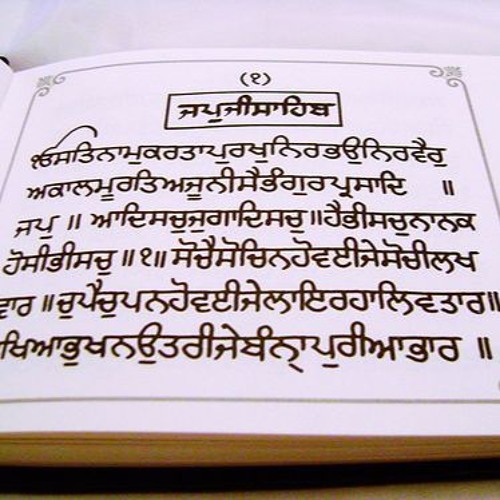 (੧)
ਜਪੁਜੀਸਾਹਿਬ
ੴਸਤਿਨਾਮੁਕਰਤਾਪੁਰਖੁਨਿਰਭਉਨਿਰਵੈਰੁ
ਅਕਾਲਮੂਰਤਿਅਜੂਨੀਸੈਭੰਗੁਰਪ੍ਰਸਾਦਿ ॥
ਜਪੁ ॥ ਆਦਿਸਚੁਜੁਗਾਦਿਸਚੁ॥ਹੈਭੀਸਚੁਨਾਨਕ
ਹੋਸੀਭੀਸਚੁ॥੧॥ ਸੋਚੈਸੋਚਿਨਹੋਵਈਜੇਸੋਚੀਲਖ
ਵਾਰ ॥ਚੁਪੈਚੁਪਨਹੋਵਈਜੇਲਾਇਰਹਾਲਿਵਤਾਰ॥
ਖਿਆਭੁਖਨਉਤਰੀਜੇਬੰਨਾਪੁਰੀਆਭਾਰ ॥